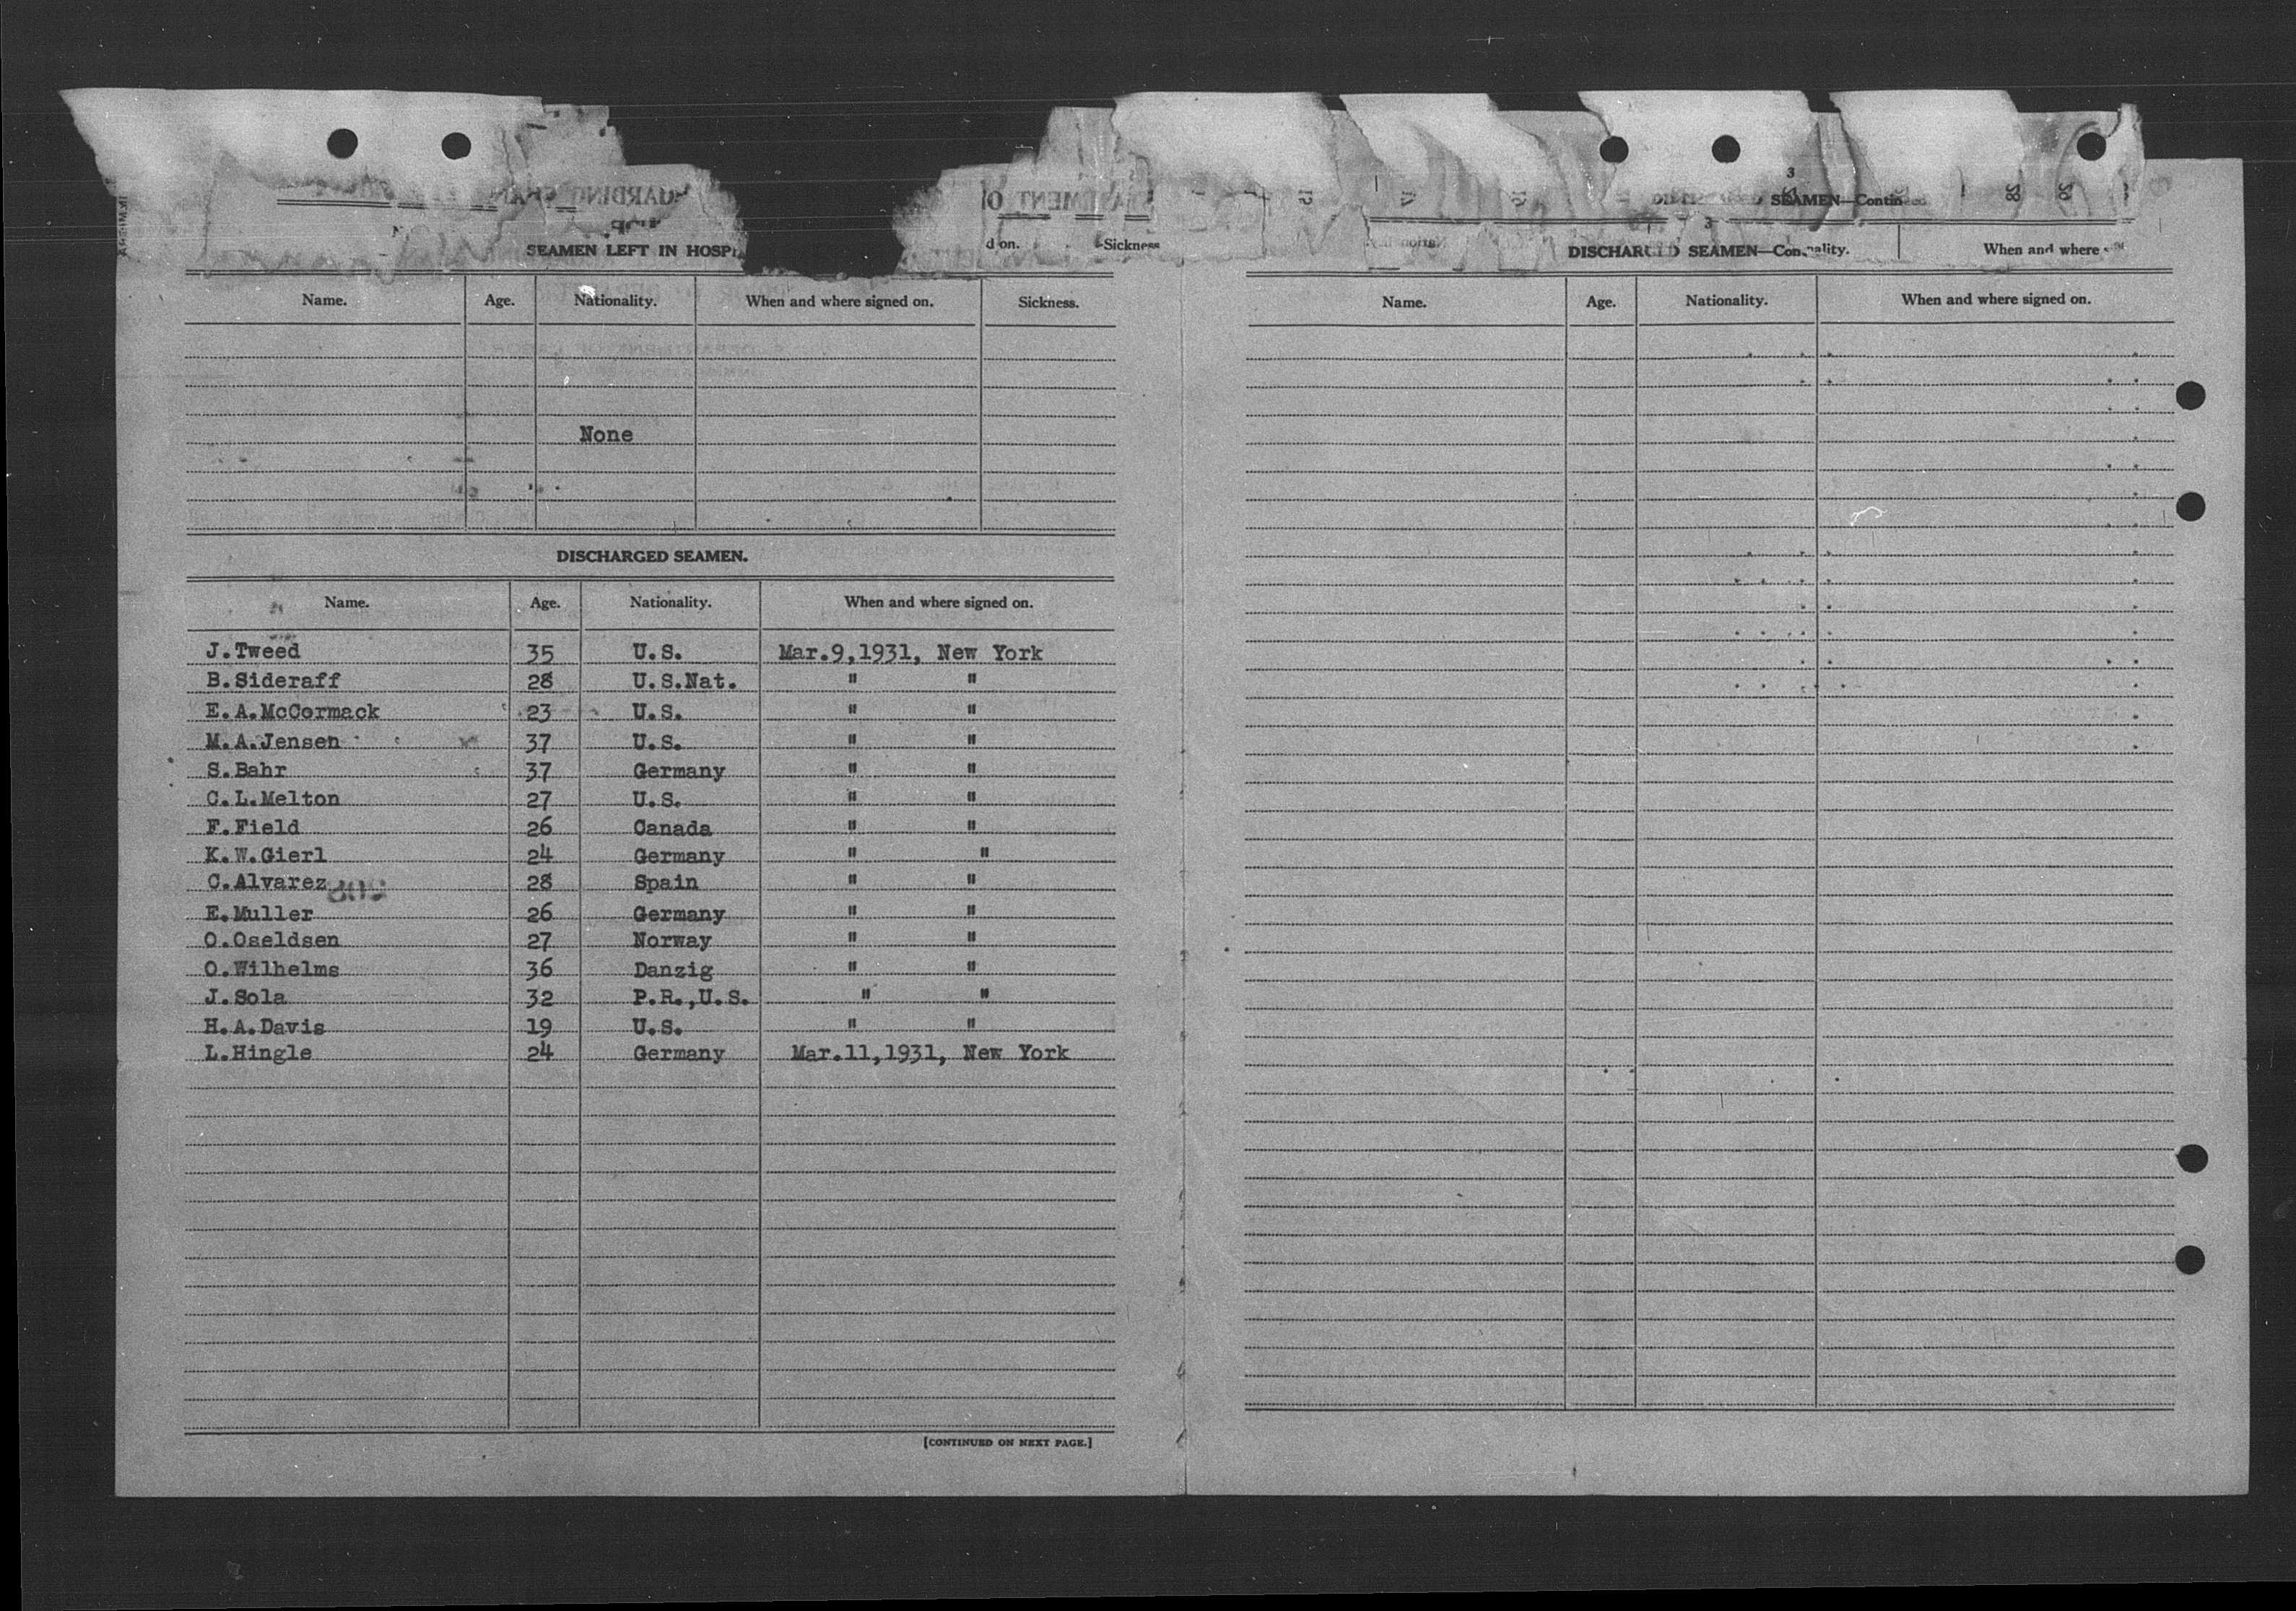 SEAMEN LEFT IN
d on. Sickness
Name. Age. Nationality. When and where signed on. Sickness.
None
DISCHARGED SEAMEN.
Name. Age. Nationality. When and where signed on.
J.Tweed 35 U.S. Mar.9,1931, New York
B.Sideraff 28 U.S.Nat. " "
E.A.McCormack 23 U.S. " "
M.A.Jensen 37 U.S. " "
S.Bahr 37 Germany " "
C.L.Melton 27 U.S. " "
F.Field 26 Canada " "
K.W.Gierl 24 Germany " "
C.Alvarez 28 Spain " "
E.Muller 26 Germany " "
O.Oseldsen 27 Norway " "
O.Wilhelms 36 Danzig " "
J.Sola 32 P.R.,U.S. " "
H.A.Davis 19 U.S. " "
L.Hingle 24 Germany Mar.11,1931, New York
[CONTINUED ON NEXT PAGE.]
3
SEAMEN—
3
DISCHARGED SEAMEN— When and where
Name. Age. Nationality. When and where signed on.